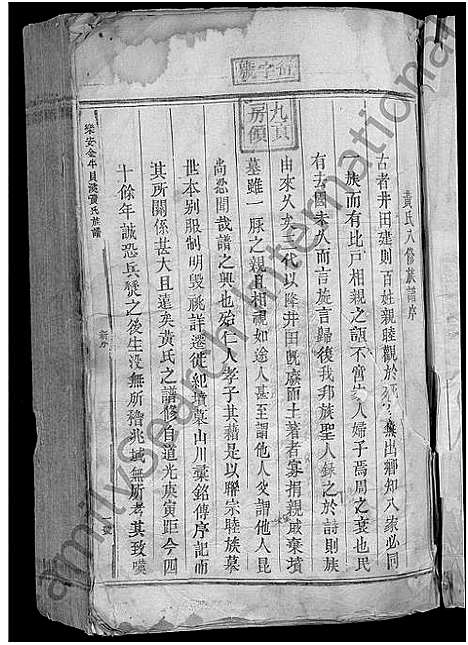 黃氏八修族譜序
古者井田建則百姓親睦觀於死徙無出鄉知八家必同
一族而有比戶相親之誼不啻家人婦子焉周之衰也民
有去國未久而言旋言歸復我邦族聖人錄之於詩則族
由來久矣三代以降井田既廢而土著者寡捐親戚棄墳
墓雖一脈之親且相視如途人甚至謂他人父謂他人昆
尚忍聞哉譜之興也殆仁人孝子其藉是以聯宗睦族墓
世本别服制明毀祧詳遷徙紀墳墓山川彙銘傳序記而
其所關係甚大且遠矣黃氏之譜修自道光庚寅距今四
十餘年誠恐兵燹之後生沒無所稽兆域無所考其致嘆
樂安金牛貝溪黃氏族譜
新序
號字
九貢
房領
FamilySearch International